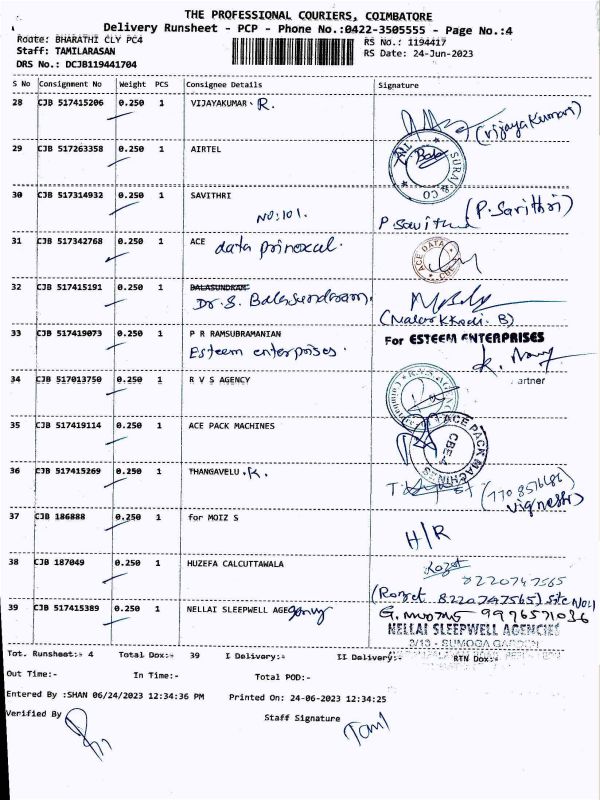 THE PROFESSIONAL COURIERS, COIMBATORE
Delivery Runsheet - PCP - Phone No.:0422-3505555 - Page No.:4
Route: BHARATHI CLY PC4 RS No.: 1194417
Staff: TAMILARASAN RS Date: 24-Jun-2023
DRS No.: DCJB119441704
S No Consignment No Weight PCS Consignee Details Signature
28 CJB 517415206 0.250 1 VIJAYAKUMAR. R. (vijayakumari)
29 CJB 517263358 0.250 1 AIRTEL SURAJ & CO
30 CJB 517314932 0.250 1 SAVITHRI (P. Savithri)
NO: 101. P. Savithri
31 CJB 517342768 0.250 1 ACE ACE DATA
data prinexcul.
32 CJB 517415191 0.250 1 BALASUNDRAM
Dr. S. Balasundaram.
(Malarkkodi. B)
33 CJB 517419073 0.250 1 P R RAMSUBRAMANIAN For ESTEEM ENTERPRISES
Esteem enterprises.
artner
34 CJB 517013750 0.250 1 R V S AGENCY
35 CJB 517419114 0.250 1 ACE PACK MACHINES ACE PACK MACHINES CBE-4
36 CJB 517415269 0.250 1 THANGAVELU. K.
37 CJB 186888 0.250 1 for MOIZ S H/R
38 CJB 187049 0.250 1 HUZEFA CALCUTTAWALA
8220747565
8220747565) Site No1
39 CJB 517415389 0.250 1 NELLAI SLEEPWELL 9976571036
NELLAI SLEEPWELL AGENCIES
Tot. Runsheet:- 4 Total Dox:- 39 I Delivery:- II Delivery:- RTN Dox:-
Out Time:- In Time:- Total POD:-
Entered By :SHAN 06/24/2023 12:34:36 PM Printed On: 24-06-2023 12:34:25
Verified By Staff Signature
Tamil